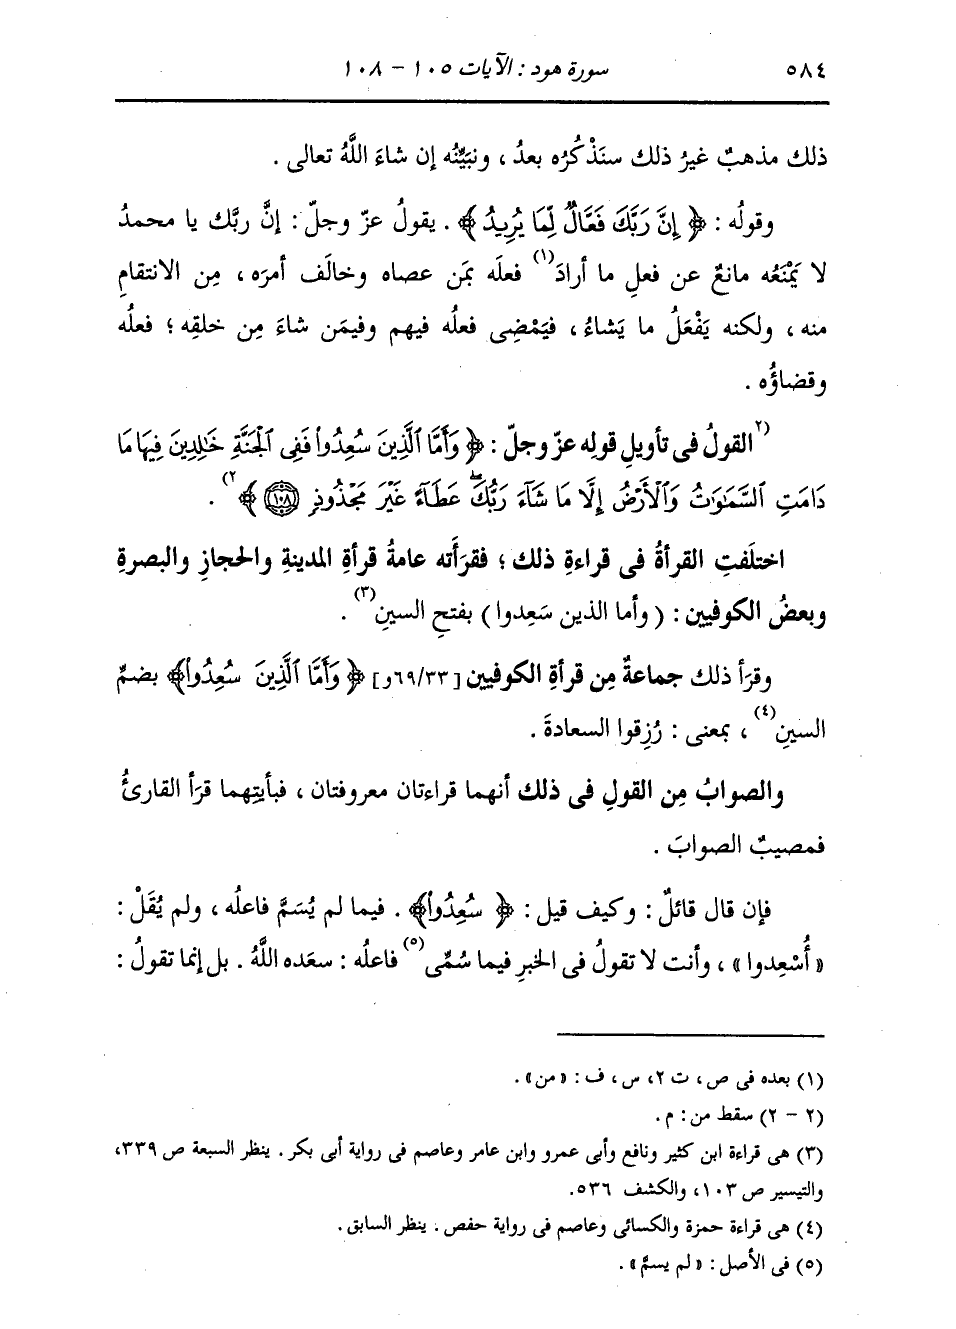 ٥٨٤ سورة هود : الآيات ١٠٥ - ١٠٨
ذلك مذهبٌ غيرُ ذلك سنَذْكُرُه بعدُ ، ونبيِّنُه إن شاءَ اللَّهُ تعالى .
وقولُه : ﴿ إِنَّ رَبَّكَ فَعَّالٌ لِّمَا يُرِيدُ ﴾ . يقولُ عزّ وجلّ : إنَّ ربَّك يا محمدُ
لا يَمْنَعُه مانعٌ عن فعلِ ما أرادَ(١) فعلَه بمَن عصاه وخالَف أمرَه ، مِن الانتقامِ
منه ، ولكنه يَفْعَلُ ما يَشاءُ ، فيَمْضِى فعلُه فيهم وفيمَن شاءَ مِن خلقِه ؛ فعلُه
وقضاؤُه .
(٢القولُ فى تأويلِ قولِه عزّ وجلّ : ﴿ وَأَمَّا ٱلَّذِينَ سُعِدُوا۟ فَفِى ٱلْجَنَّةِ خَٰلِدِينَ فِيهَا مَا
دَامَتِ ٱلسَّمَٰوَٰتُ وَٱلْأَرْضُ إِلَّا مَا شَآءَ رَبُّكَ ۖ عَطَآءً غَيْرَ مَجْذُوذٍ ١٠٨ ﴾٢) .
اختلَفتِ القرأةُ فى قراءةِ ذلك ؛ فقرَأَته عامةُ قرأةِ المدينةِ والحجازِ والبصرةِ
وبعضُ الكوفيين : ( وأما الذين سَعِدوا ) بفتحِ السينِ(٣) .
وقرَأ ذلك جماعةٌ مِن قرأةِ الكوفيين [٦٩/٣٣و] ﴿ وَأَمَّا ٱلَّذِينَ سُعِدُوا۟﴾ بضمِّ
السينِ(٤) ، بمعنى : رُزِقوا السعادةَ .
والصوابُ مِن القولِ فى ذلك أنهما قراءتان معروفتان ، فبأيتِهما قرَأ القارئُ
فمصيبٌ الصوابَ .
فإن قال قائلٌ : وكيف قيل : ﴿ سُعِدُوا۟﴾ . فيما لم يُسَمَّ فاعلُه ، ولم يُقَلْ :
« أُسْعِدوا » ، وأنت لا تقولُ فى الخبرِ فيما سُمِّى(٥) فاعلُه : سعَده اللَّهُ . بل إنما تقولُ :
(١) بعده فى ص ، ت ٢، س ، ف : «من» .
(٢ - ٢) سقط من : م .
(٣) هى قراءة ابن كثير ونافع وأبى عمرو وابن عامر وعاصم فى رواية أبى بكر . ينظر السبعة ص ٣٣٩،
والتيسير ص ١٠٣، والكشف ٥٣٦.
(٤) هى قراءة حمزة والكسائى وعاصم فى رواية حفص . ينظر السابق .
(٥) فى الأصل : « لم يسمّ» .